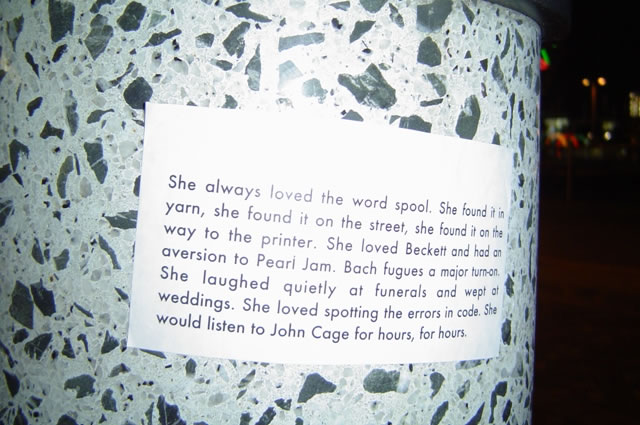 She always loved the word spool. She found it in
yarn, she found it on the street, she found it on the
way to the printer. She loved Beckett and had an
aversion to Pearl Jam. Bach fugues a major turn-on.
She laughed quietly at funerals and wept at
weddings. She loved spotting the errors in code. She
would listen to John Cage for hours, for hours.